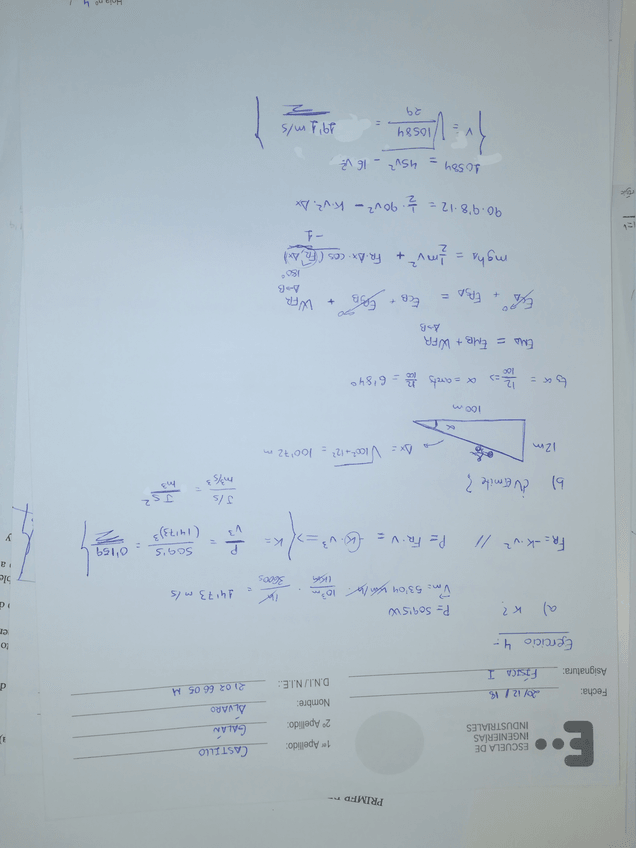 Hoja nº 4
PRIMER
ESCUELA DE
INGENIERÍAS
INDUSTRIALES
1º Apellido: CASTILLO
2º Apellido: GALÁN
Nombre: ÁLVARO
D.N.I./N.I.E: 21026605 M
Fecha: 20/12/18
Asignatura: FÍSICA I
Ejercicio 4.-
a) K? P= 509'5W
Vm= 53'04 km/h · 10³m/1km · 1h/3600s = 14'73 m/s
FR=-K·v² // P= FR·v = -K·v³ => K= P/v³ = 509'5/(14'73)³ = 0'159
J/s / m³/s³ = J s² / m³
b) ¿Vlímite?
12m
Δx = √100²+12² = 100'72 m
α
100m
tg α = 12/100 => α = arctg 12/100 = 6'84º
EMA = EMB + WFR A→B
ECA + EPgA = ECB + EPgB + WFR A→B
180º
mghA = 1/2 mv² + FR·Δx·cos(FR,Δx)
-1
90·9'8·12 = 1/2·90v² - K·v²·Δx
10584 = 45v² - 16v²
v = √10584/29 = 19'1 m/s